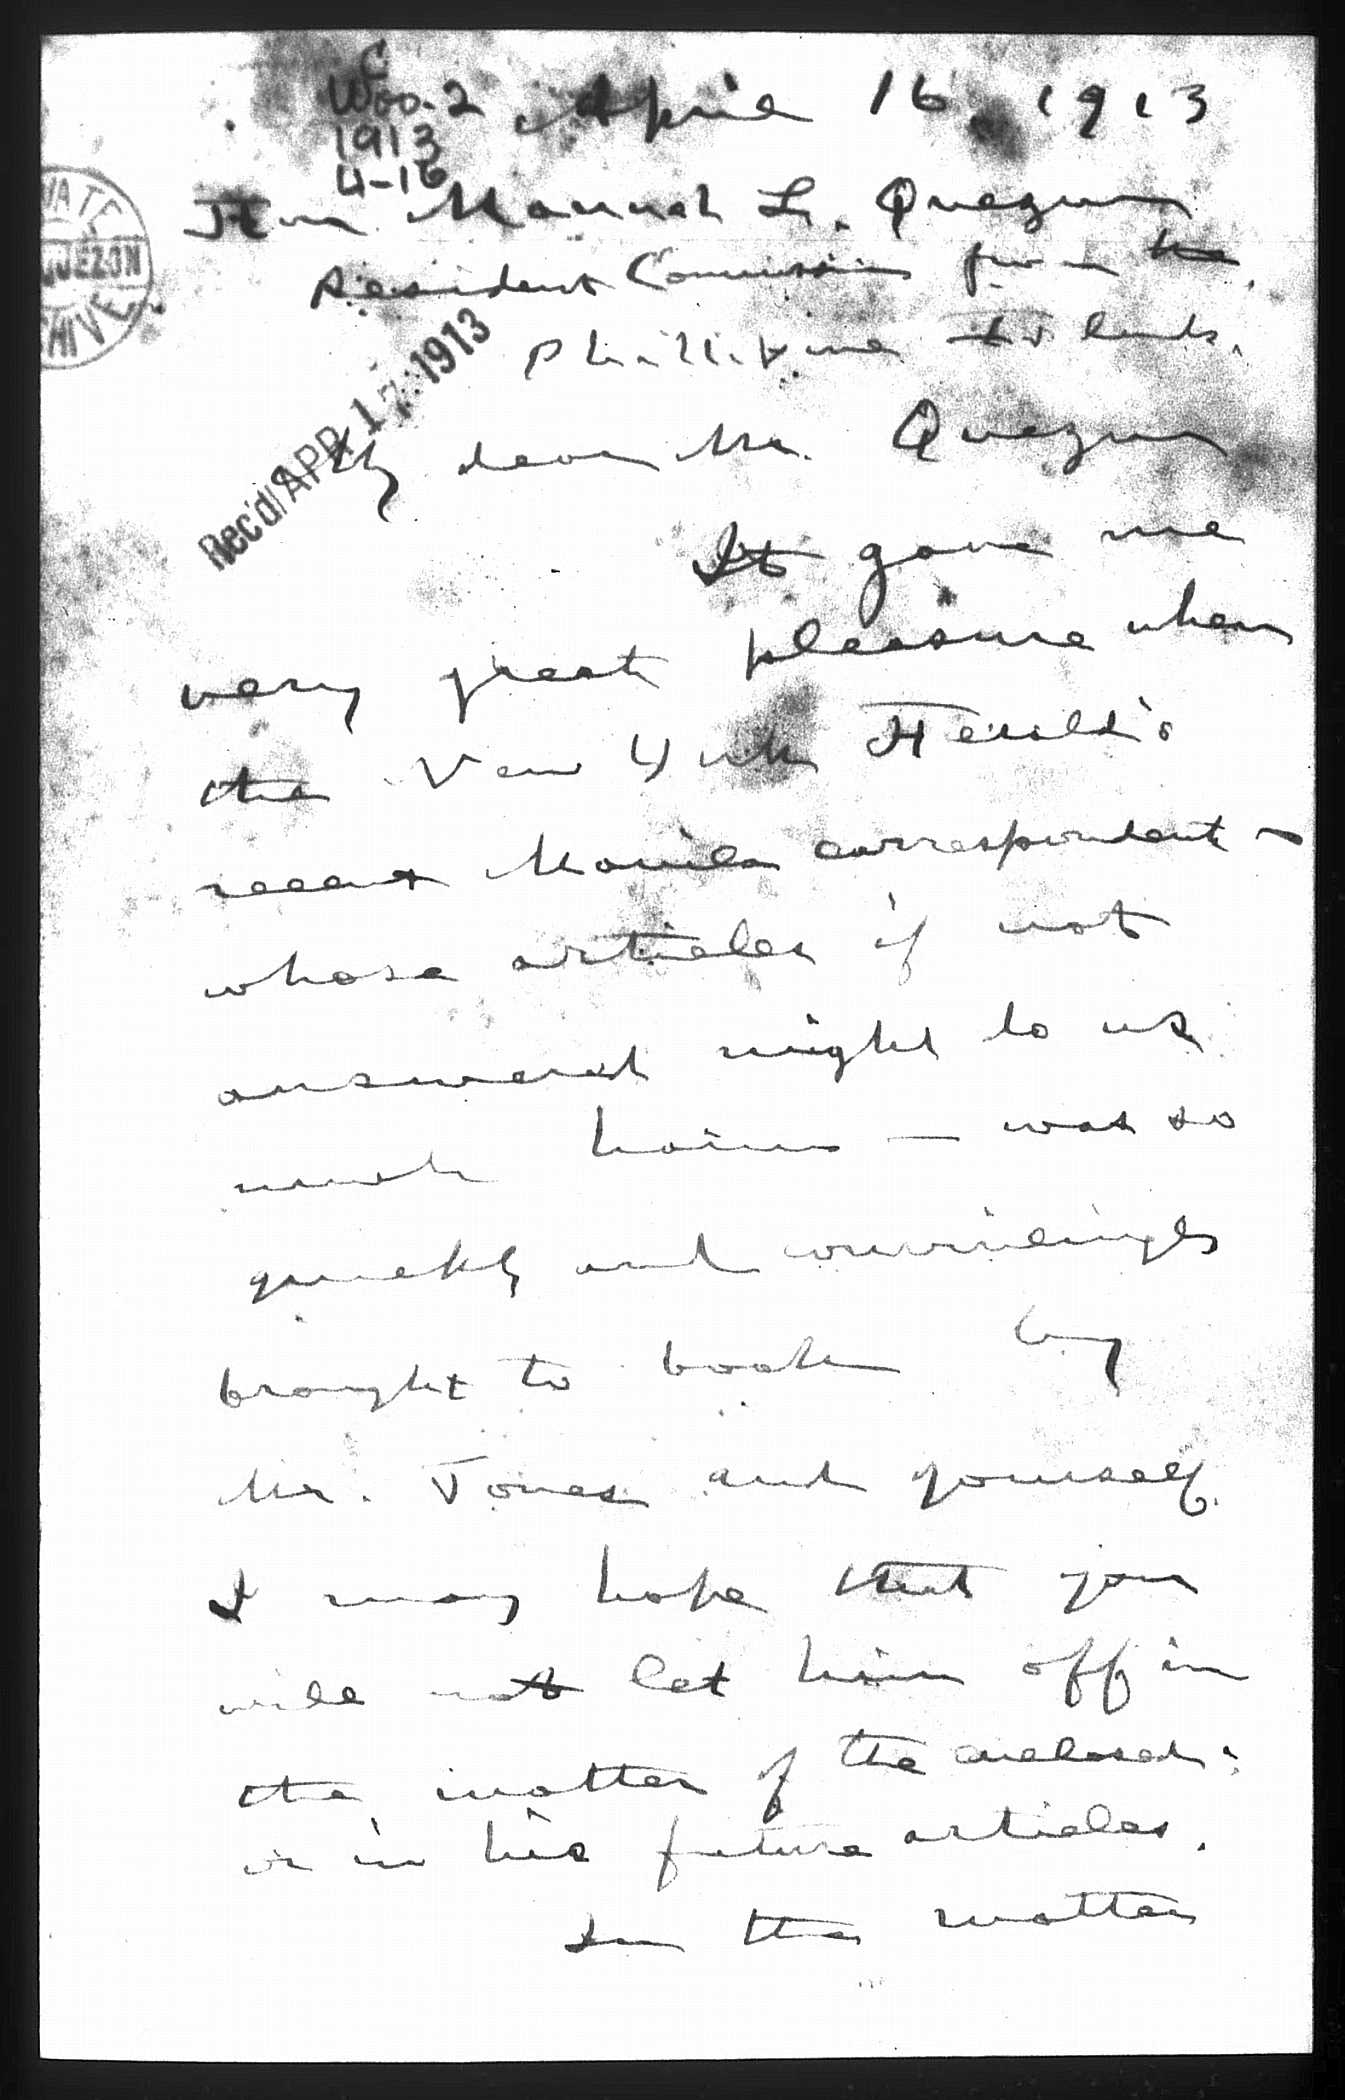 C
Woo-2
1913
4-16
April 16, 1913
Hon. Manuel L. Quezon
Resident Commission from the
Phillipine Islands.
VATE
QUEZON
CHIVE
Rec'd APR 17 1913
My dear Mr. Quezon
It gave me
very great pleasure when
the New York Herald's
recent Manila correspondent –
whose articles if not
answered might do us
much harm – was so
quickly and convincingly
brought to book by
Mr. Jones and yourself.
I may hope that you
will not let him off in
the matter of the enclosed;
or in his future articles.
In the matter